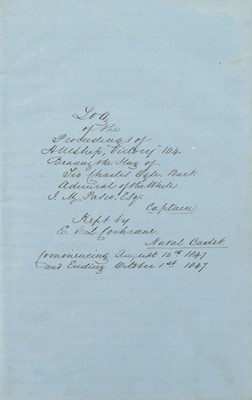 Log
of the
Proceedings of
H.M. Ship "Victory" 104.
Bearing the Flag of
Sir Charles Ogle. Bart
Admiral of the White
J. M. Pasco. Esq:
Captain
Kept by
C. S. L Cochrane
Naval Cadet.
Commencing August 12th 1847
and Ending October 1st 1847